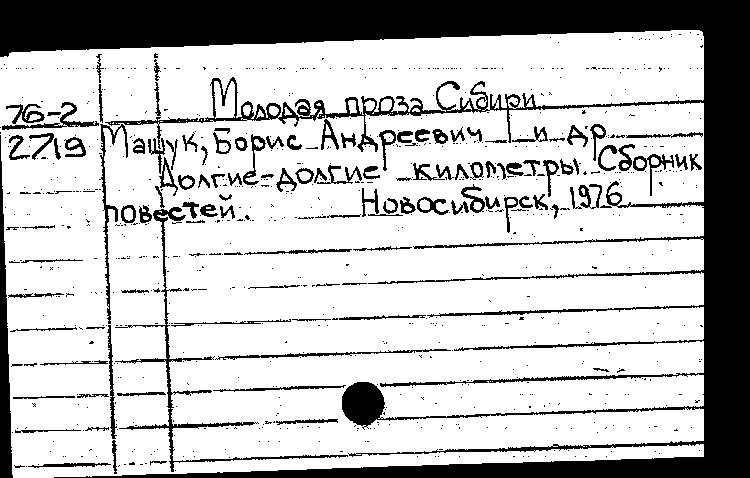 Молодая проза Сибири.
76-2
2719 Машук, Борис Андреевич и др.
Долгие-долгие километры. Сборник
повестей. Новосибирск, 1976